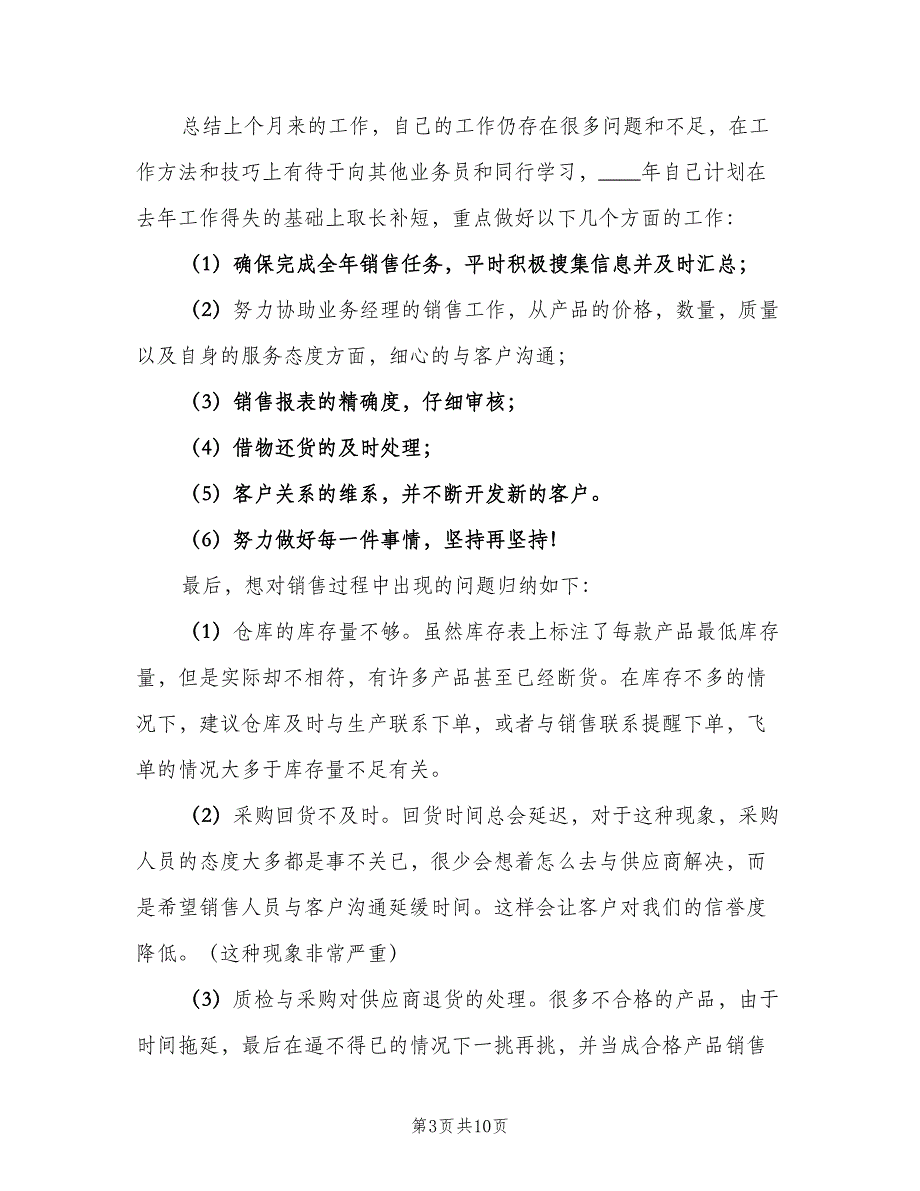 总结上个月来的工作，自己的工作仍存在很多问题和不足，在工
作方法和技巧上有待于向其他业务员和同行学习，____年自己计划在
去年工作得失的基础上取长补短，重点做好以下几个方面的工作：
（1）确保完成全年销售任务，平时积极搜集信息并及时汇总；
（2）努力协助业务经理的销售工作，从产品的价格，数量，质量
以及自身的服务态度方面，细心的与客户沟通；
（3）销售报表的精确度，仔细审核；
（4）借物还货的及时处理；
（5）客户关系的维系，并不断开发新的客户。
（6）努力做好每一件事情，坚持再坚持！
最后，想对销售过程中出现的问题归纳如下：
（1）仓库的库存量不够。虽然库存表上标注了每款产品最低库存
量，但是实际却不相符，有许多产品甚至已经断货。在库存不多的情
况下，建议仓库及时与生产联系下单，或者与销售联系提醒下单，飞
单的情况大多于库存量不足有关。
（2）采购回货不及时。回货时间总会延迟，对于这种现象，采购
人员的态度大多都是事不关己，很少会想着怎么去与供应商解决，而
是希望销售人员与客户沟通延缓时间。这样会让客户对我们的信誉度
降低。（这种现象非常严重）
（3）质检与采购对供应商退货的处理。很多不合格的产品，由于
时间拖延，最后在逼不得已的情况下一挑再挑，并当成合格产品销售
第3页共10页